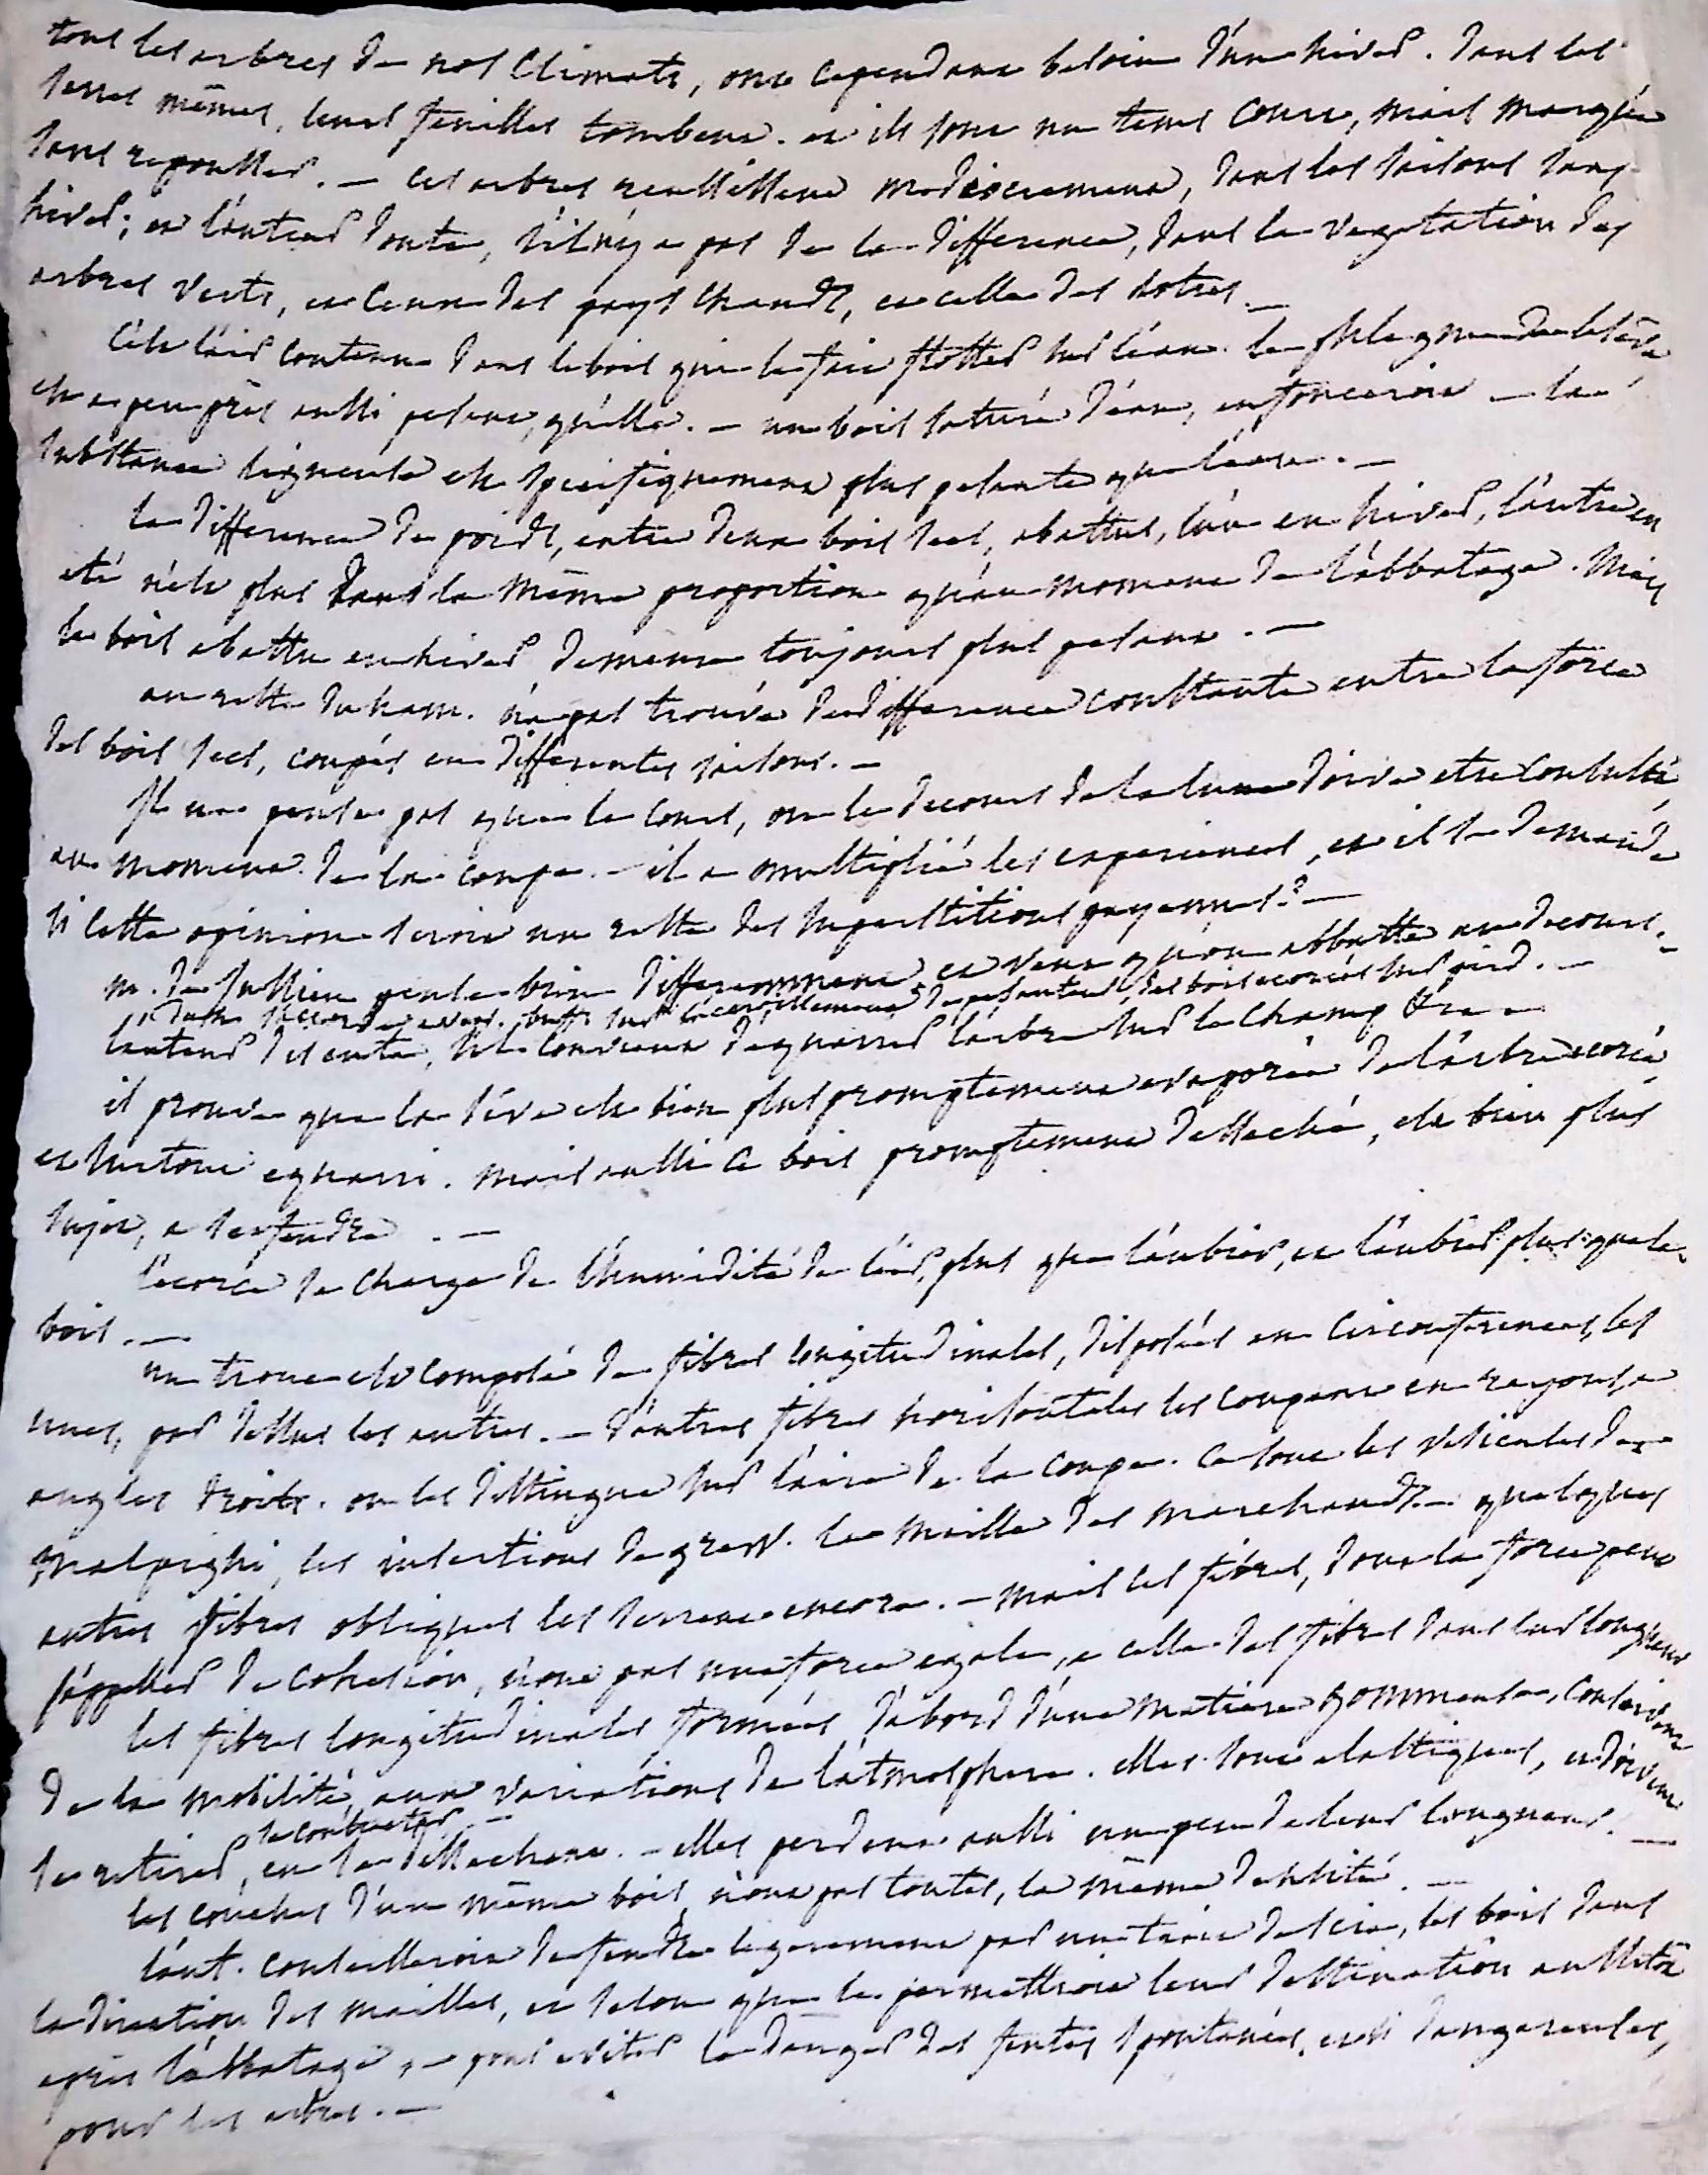 tous les arbres de nos climats, ont cependant besoin d'un hiver. dans les
serres mêmes, leurs feuilles tombent. et ils sont un tems court, mais marqué
sans repousser. — ces arbres reussissent mediocrement, dans les saisons sans
hiver; et l'auteur doute, s'il n'y a pas de la difference, dans la vegetation des
arbres verts, et ceux des pays chauds, et celle des notres. —
C'est l'air contenu dans le bois qui le fait flotter sur l'eau. le phlegme de la séve
est a peu près aussi pesant, qu'elle. — un bois saturé d'eau, enfonceroit — la
substance ligneuse est specifiquement plus pesante que l'eau. —
la difference de poids, entre deux bois secs, abattus, l'un en hiver, l'autre en
eté n'est plus dans la même proportion qu'au moment de l'abbatage. Mais
le bois abattu en hiver, demeure toujours plus pesant. —
au reste duham. n'a pas trouvé de difference constante entre la force
des bois secs, coupés en differentes saisons. —
Il ne pense pas que le cours, ou le decours de la lune doive etre consulté
au moment de la coupe. — il a multiplié les experiences, et il se demande
si cette opinion seroit un reste des superstitions payennes? —
m. de Jussieu pense bien differemment et veut qu'on abbatte au decours. —
de pesanteur, des bois ecorcés sur pied. —
l'auteur discute, s'il convient d'équarrir l'arbre sur le champ &ra —
il prouve que la séve est bien plus promptement evaporée de l'arbre ecorcé
et surtout equarri. mais aussi ce bois promptement desseché, est bien plus
sujet, a se fendre. —
l'ecorce se charge de l'humidité de l'air, plus que l'aubier, et l'aubier plus que le
bois. —
un tronc est composé de fibres longitudinales, disposées en circonferences, les
unes, par dessus les autres. — d'autres fibres horisontales les coupent en rayons, a
angles droits. on les distingue sur l'aire de la coupe. ce sont les vesicules de
Malpighi, les insertions de grew. la maille des marchands. — quelques
autres fibres obliques les serrent encore. — mais ces fibres, dont la force peut
s'appeller de cohesion, n'ont pas une force egale, a celle des fibres dans leur longueur
les fibres longitudinales formées d'abord d'une matiere gommeuse, conservent
de la mobilité, aux variations de l'atmosphere. elles sont elastiques, et doivent
se contracter —
se retirer, en se dessechant. — elles perdent aussi un peu de leur longueur. —
les couches d'un même bois, n'ont pas toutes, la même densité. —
l'aut. conseilleroit de fendre legerement par un trait de scie, les bois dans
la direction des mailles, et selon que le permettroit leur destination aussitôt
après l'abbatage, — pour eviter le danger des fentes spontanées, et si dangereuses,
pour les arbres. —